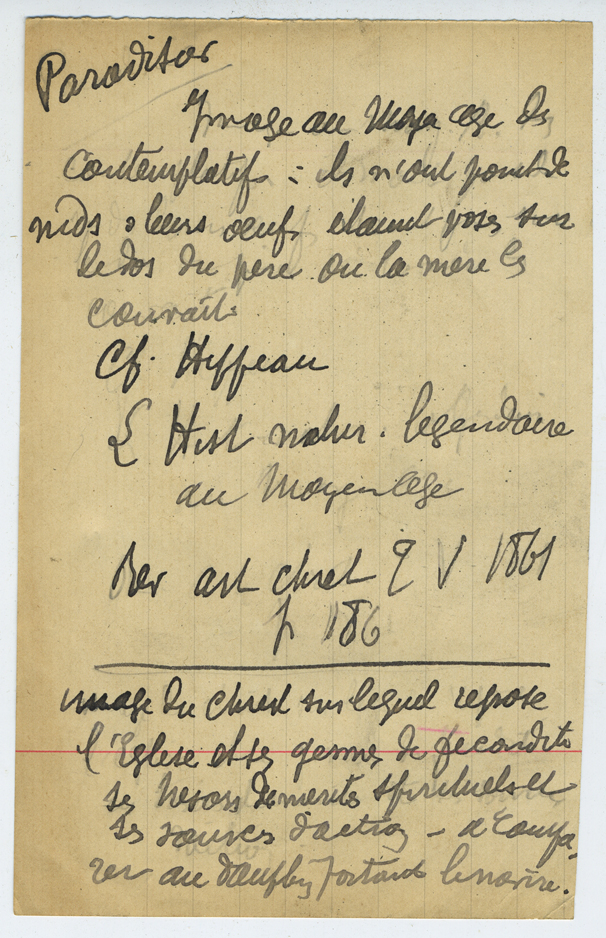 Paradisier
Image au Moyen age des
contemplatifs : ils n'ont point de
nids, leurs oeufs étaient posés sur
le dos du pere ou la mere les
couvait.
Cf. Hippeau
L'Hist natur. légendaire
au Moyen Age
Rev art chret V 1861
p 186
image du Christ sur lequel repose
l'Eglise et ses germes de fecondité
ses tresors de merites spirituels et
ses sources d'action - a compa-
rer au dauphin portant le navire.